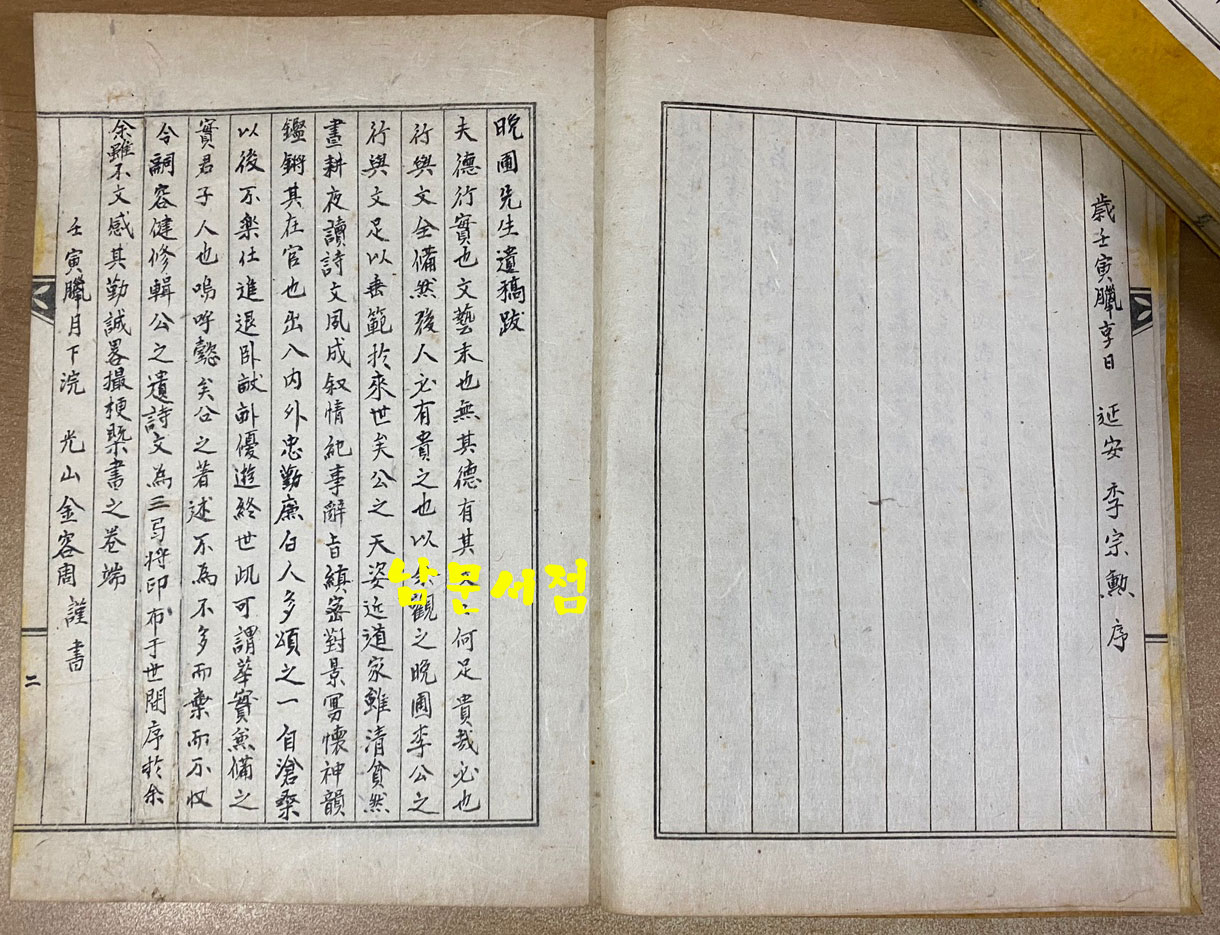 歲壬寅臘享日 延安 李宗勲 序
晩圃先生遺稿跋
夫德行實也文藝末也無其德有其何足貴哉必也
行與文全備然後人必有貴之也以余觀之晩圃李公之
行與文足以垂範於來世矣公之天姿近道家雖淸貧然
晝耕夜讀詩文夙成叙情紀事辭旨縝密對景寫懷神韻
鑑鏘其在官也出入內外忠勤廉白人多頌之一自滄桑
以後不樂仕進退卧畎畝優遊終世此可謂華實兼備之
實君子人也嗚呼懿矣公之著述不為不多而棄而不收
令嗣容健修輯公之遺詩文為三弓將印布于世間序於余
余雖不文感其勤誠畧撮梗槩書之卷端
壬寅臘月下浣 光山金容周 謹書
二
남문서점